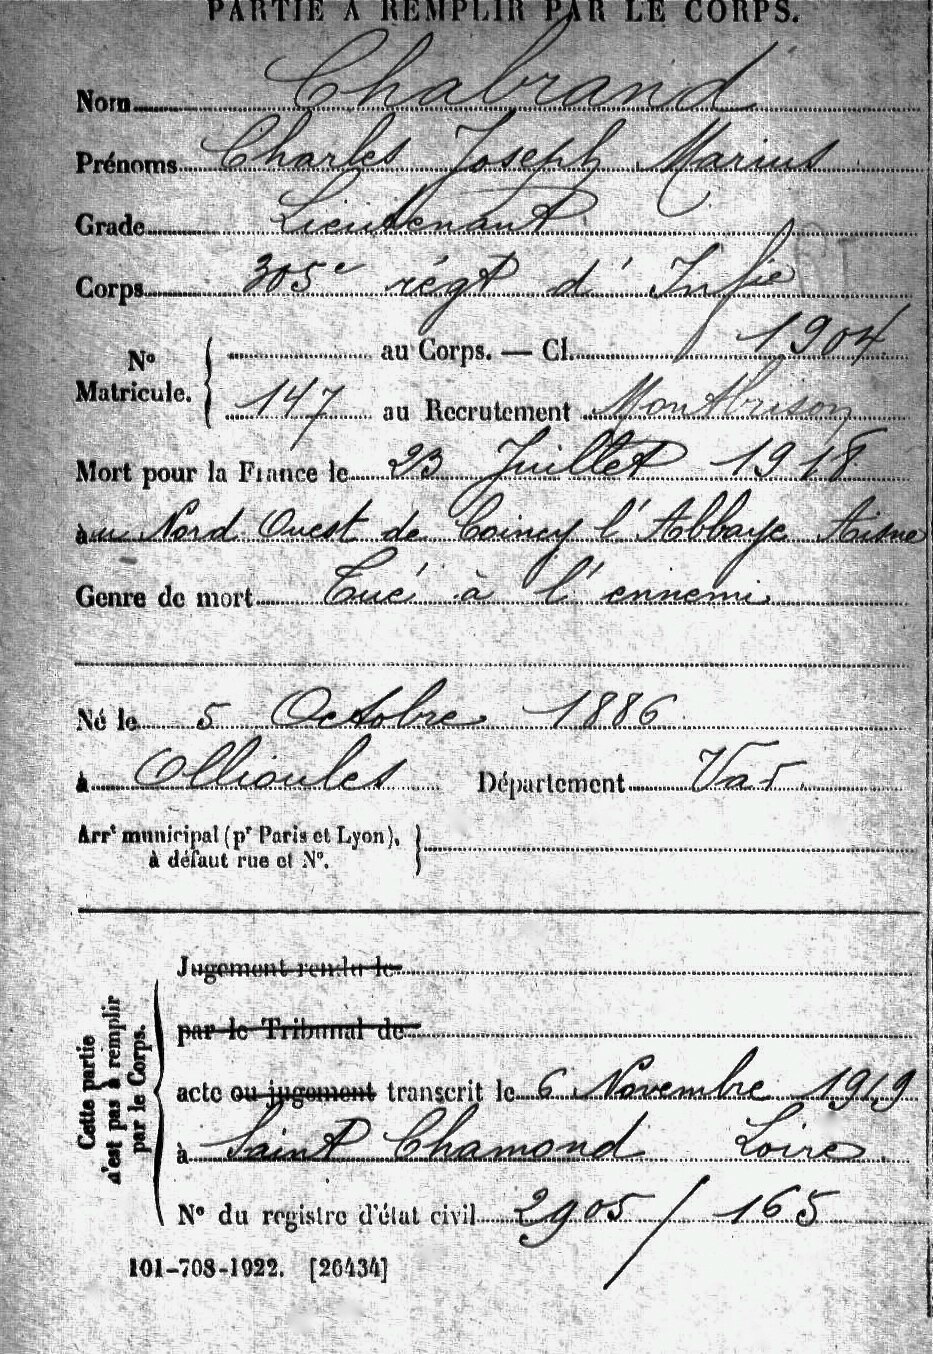 PARTIE À REMPLIR PAR LE CORPS.
Nom Chabrand
Prénoms Charles Joseph Marius
Grade Lieutenant
Corps 305e régt d'Infie
N° Matricule. { au Corps. — Cl. 1904
147 au Recrutement Montbrison
Mort pour la France le 23 Juillet 1918
à au Nord Ouest de Coincy l'Abbaye Aisne
Genre de mort Tué à l'ennemi
Né le 5 Octobre 1886
à Ollioules Département Var
Arrt municipal (pr Paris et Lyon),
à défaut rue et N°.
Cette partie n'est pas à remplir par le Corps.
Jugement rendu le
par le Tribunal de
acte ou jugement transcrit le 6 Novembre 1919
à Saint Chamond Loire
N° du registre d'état civil 2905 / 165
101-708-1922. [26434]